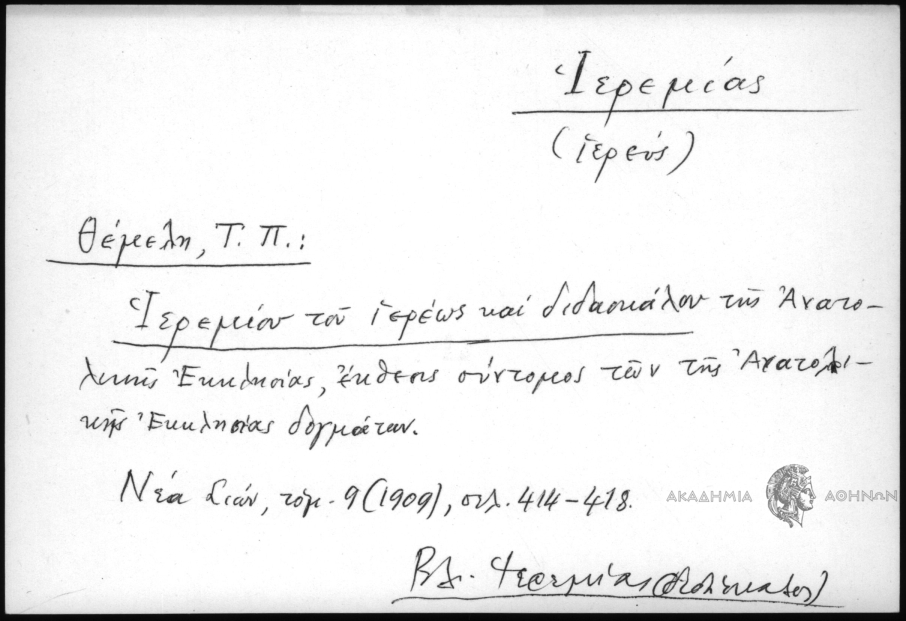 Ἱερεμίας
(ἱερεύς)
Θέμελη, Τ. Π.:
Ἱερεμίου τοῦ ἱερέως καί διδασκάλου τῆς Ἀνατο-
λικῆς Ἐκκλησίας, ἔκθεσις σύντομος τῶν τῆς Ἀνατολι-
κῆς Ἐκκλησίας δογμάτων.
Νέα Σιών, τόμ. 9 (1909), σελ. 414-418.
ΑΚΑΔΗΜΙΑ ΑΘΗΝΩΝ
Βλ. Ἱερεμίας